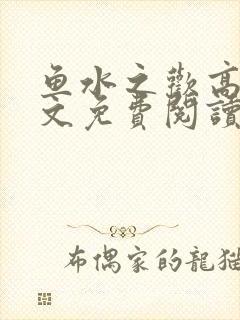 鱼水之歡高
文免費閱讀
布偶家的龍猫